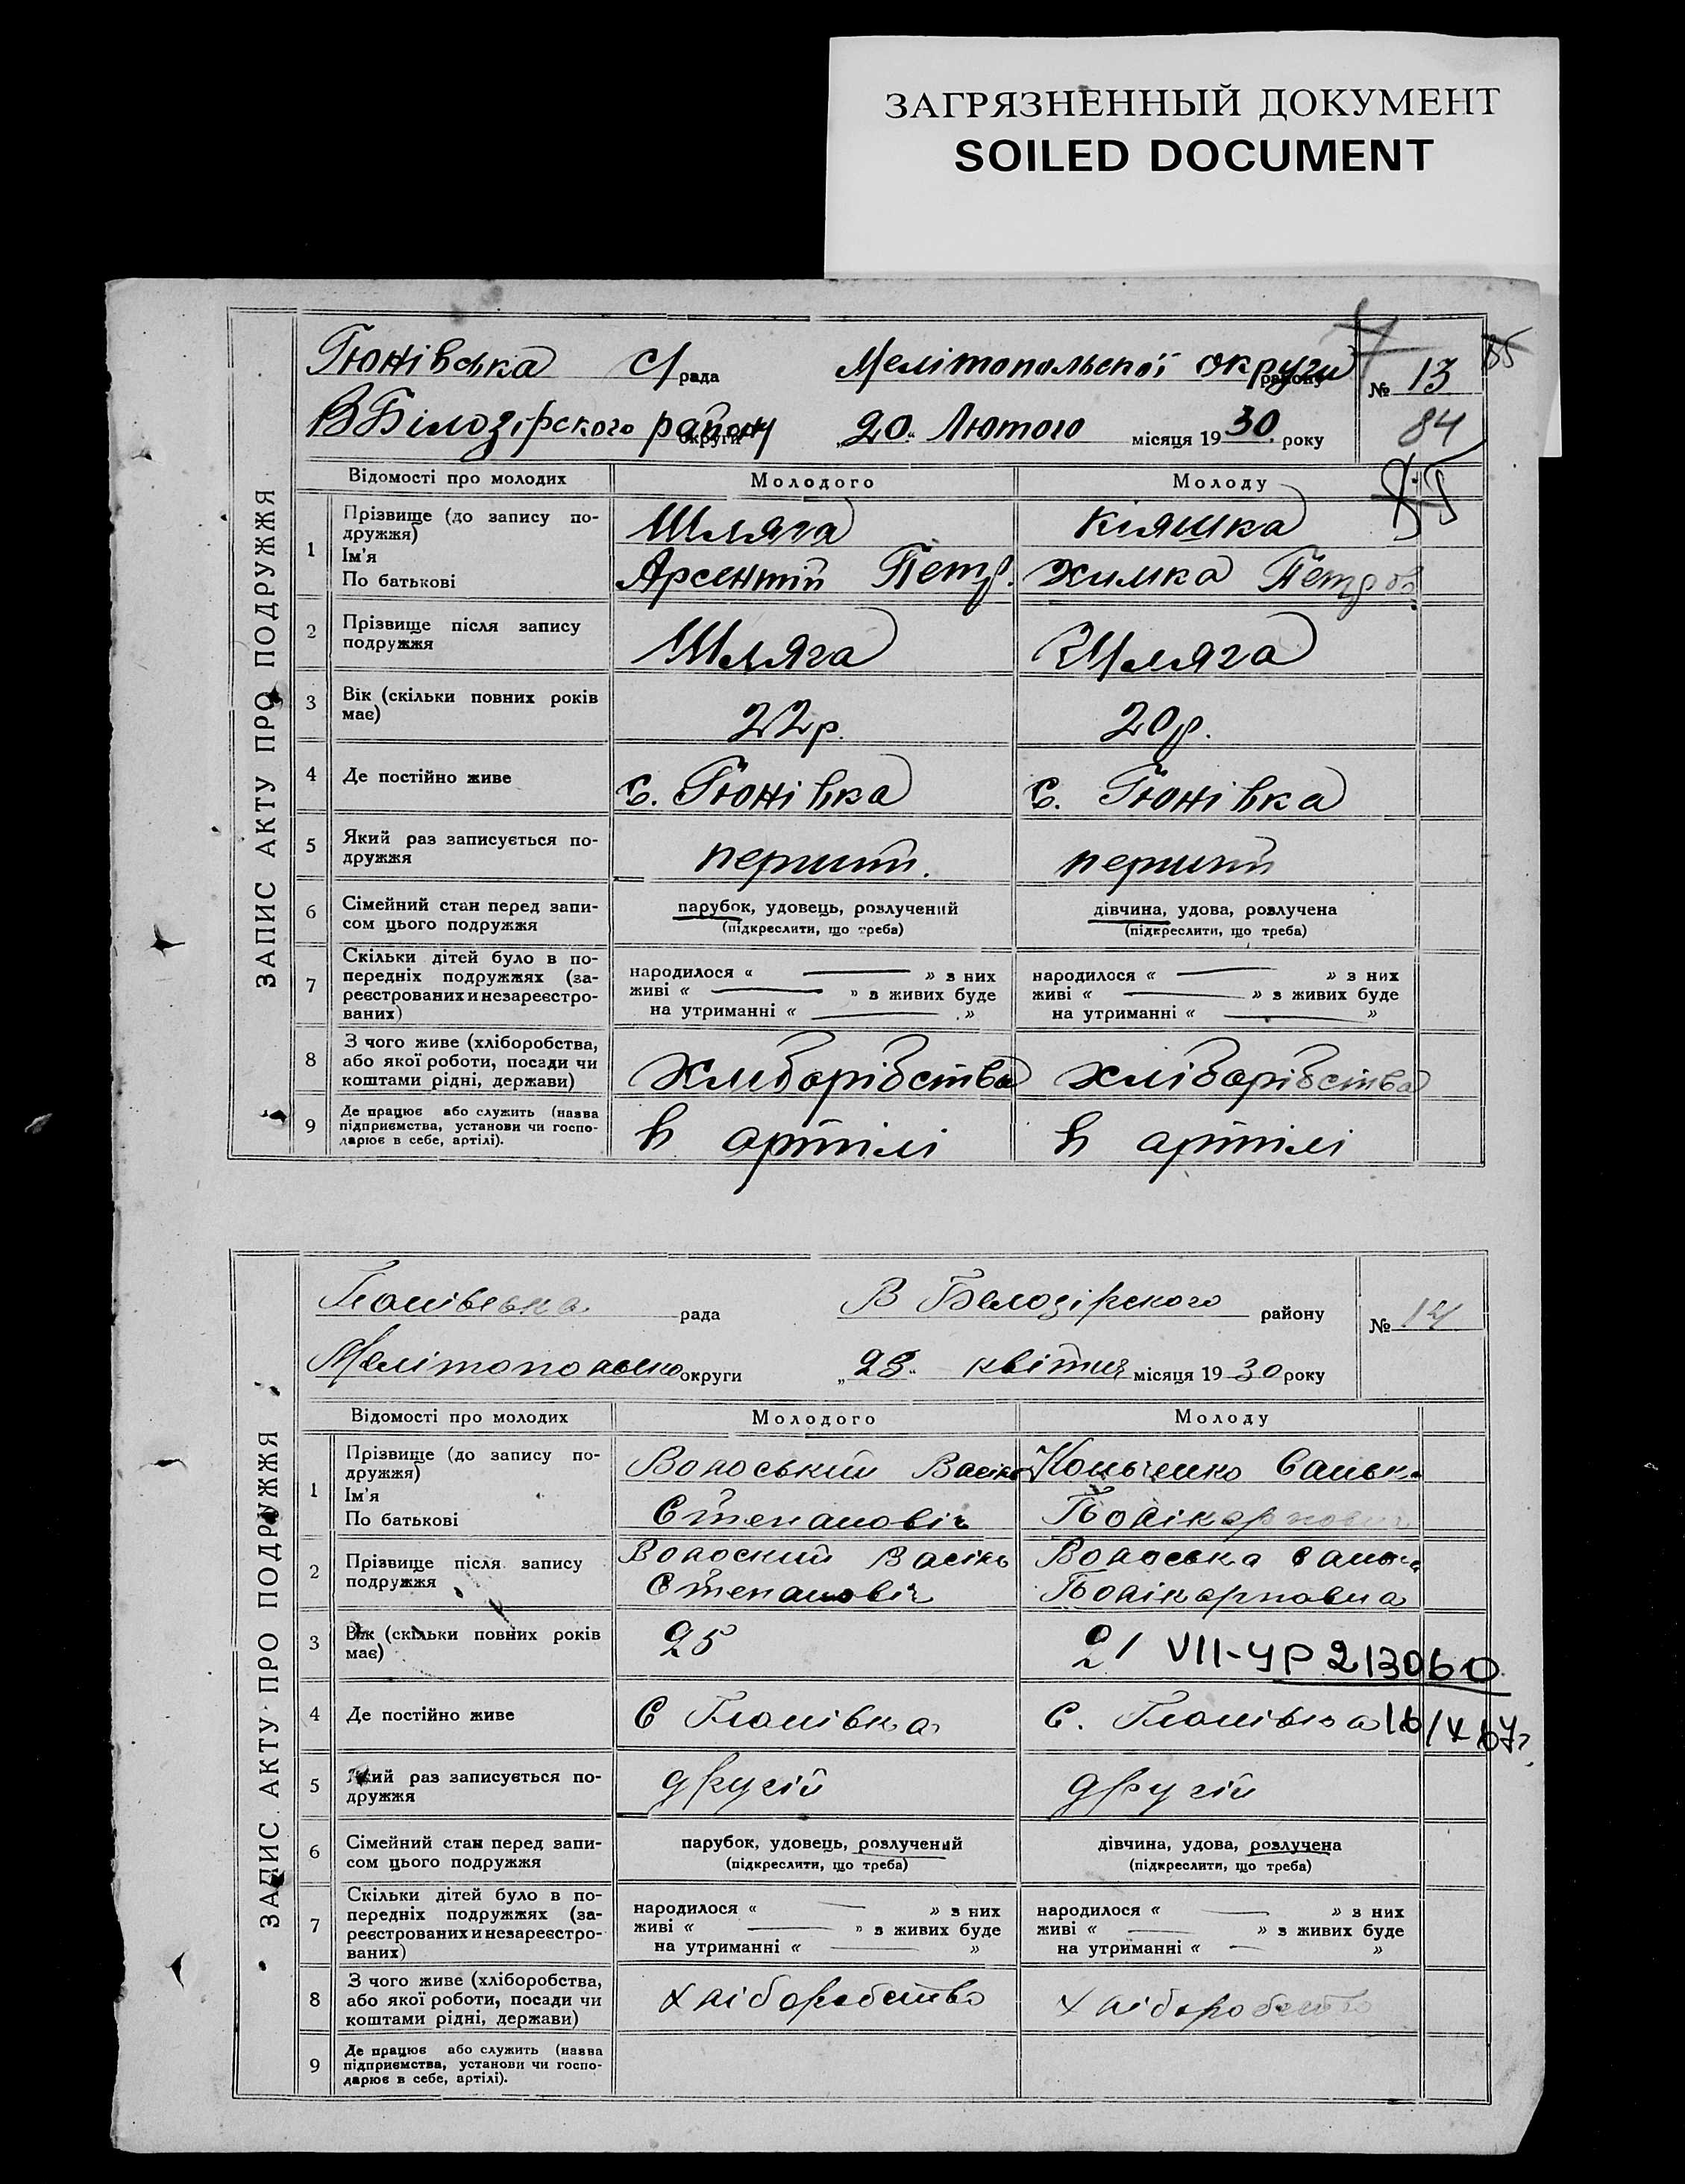 ЗАГРЯЗНЕННЫЙ ДОКУМЕНТ
SOILED DOCUMENT
ЗАПИС АКТУ ПРО ПОДРУЖЖЯ
Гюнівська с/рада Мелітопольської округи району № 13
В Білозірського району округи „20“ Лютого місяця 1930 року 84
Відомості про молодих Молодого Молоду
1 Прізвище (до запису подружжя) Шляга Кіяшка
Ім'я
По батькові Арсентій Петр. Химка Петров
2 Прізвище після запису подружжя Шляга Шляга
3 Вік (скільки повних років має) 22р. 20р.
4 Де постійно живе с. Гюнівка с. Гюнівка
5 Який раз записується подружжя перший. перший
6 Сімейний стан перед записом цього подружжя парубок, удовець, розлучений дівчина, удова, розлучена
(підкреслити, що треба) (підкреслити, що треба)
7 Скільки дітей було в попередніх подружжях (зареєстрованих и незареєстрованих)
народилося « — » з них народилося « — » з них
живі « — » з живих буде живі « — » з живих буде
на утриманні « — » на утриманні « — »
8 З чого живе (хліборобства, або якої роботи, посади чи коштами рідні, держави) хліборібства хліборібства
9 Де працює або служить (назва підприємства, установи чи господарює в себе, артілі). в артілі в артілі
ЗАПИС АКТУ ПРО ПОДРУЖЖЯ
Гюнівська рада В Белозірского району № 14
округи „28“ квітня місяця 1930 року
Відомості про молодих Молодого Молоду
1 Прізвище (до запису подружжя) Волоський Василь
Ім'я
По батькові Степановіч
2 Прізвище після запису подружжя Волоский Василь Волоська
Степановіч Полікарповна
3 Вік (скільки повних років має) 25 21 VII-УР 213060
4 Де постійно живе с Гюнівка с. Гюнівка 16/X 67г
5 Який раз записується подружжя другій другій
6 Сімейний стан перед записом цього подружжя парубок, удовець, розлучений дівчина, удова, розлучена
(підкреслити, що треба) (підкреслити, що треба)
7 Скільки дітей було в попередніх подружжях (зареєстрованих и незареєстрованих)
народилося « — » з них народилося « — » з них
живі « — » з живих буде живі « — » з живих буде
на утриманні « — » на утриманні « — »
8 З чого живе (хліборобства, або якої роботи, посади чи коштами рідні, держави) хліборобство хліборобство
9 Де працює або служить (назва підприємства, установи чи господарює в себе, артілі).